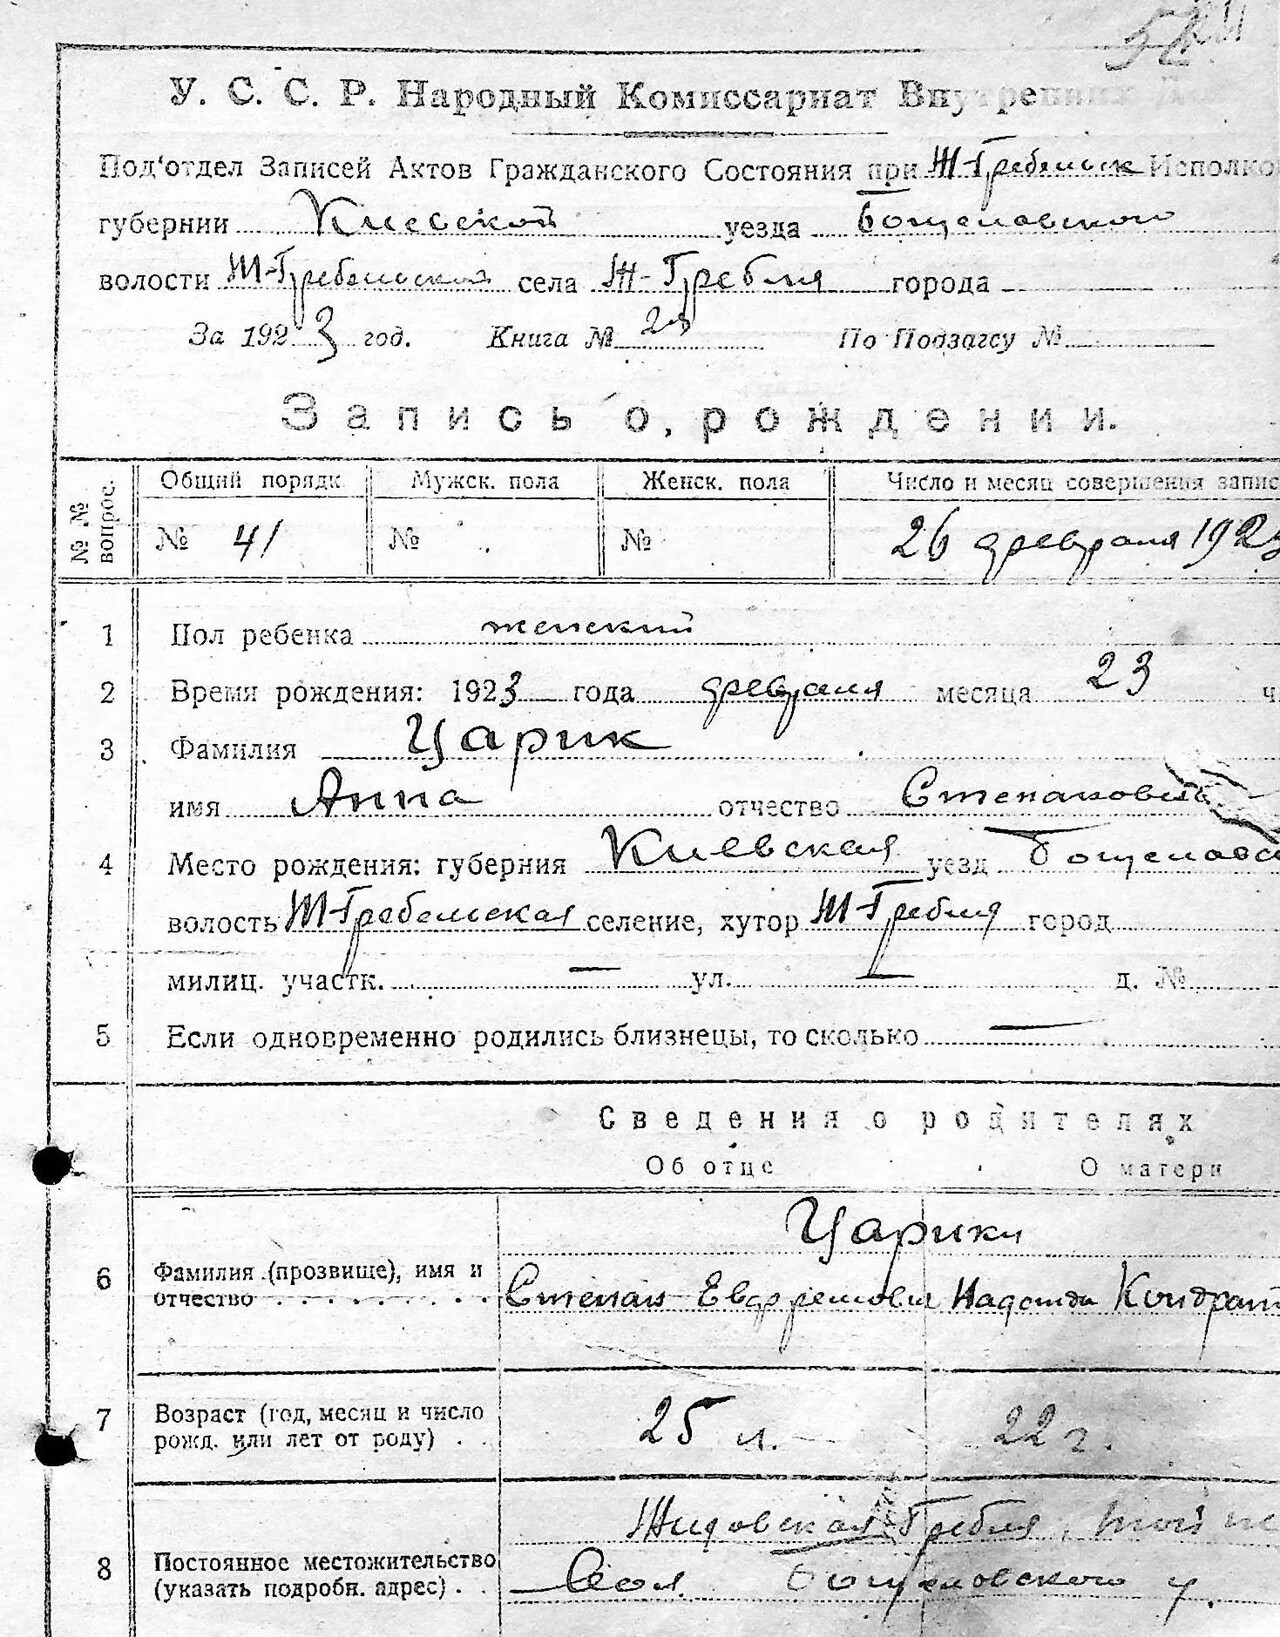 У. С. С. Р. Народный Комиссариат Внутренних
Под'отдел Записей Актов Гражданского Состояния при Ж-Гребельск Исполко
губернии Киевской уезда Богуславского
волости Ж-Гребельской села Ж-Гребля города —
За 1923 год. Книга № По Подзагсу №
Запись о рождении.
№ № вопрос. Общий порядк. Мужск. пола Женск. пола Число и месяц совершения запис
№ 41 № № 26 февраля 1923
1 Пол ребенка женский
2 Время рождения: 1923 года февраля месяца 23 ч
3 Фамилия Царик
имя Анна отчество Степановна
4 Место рождения: губерния Киевская уезд Богуславс
волость Ж-Гребельская селение, хутор Ж-Гребля город
милиц. участк. — ул. — д. №
5 Если одновременно родились близнецы, то сколько —
Сведения о родителях
Об отце О матери
Царики
6 Фамилия (прозвище), имя и
отчество Степан Евфремович Надежда Кондрат
7 Возраст (год, месяц и число
рожд. или лет от роду) 25 л. 22 г.
Жидовская Гребля, той же
8 Постоянное местожительство
(указать подробн. адрес) Вол. Богуславского у.